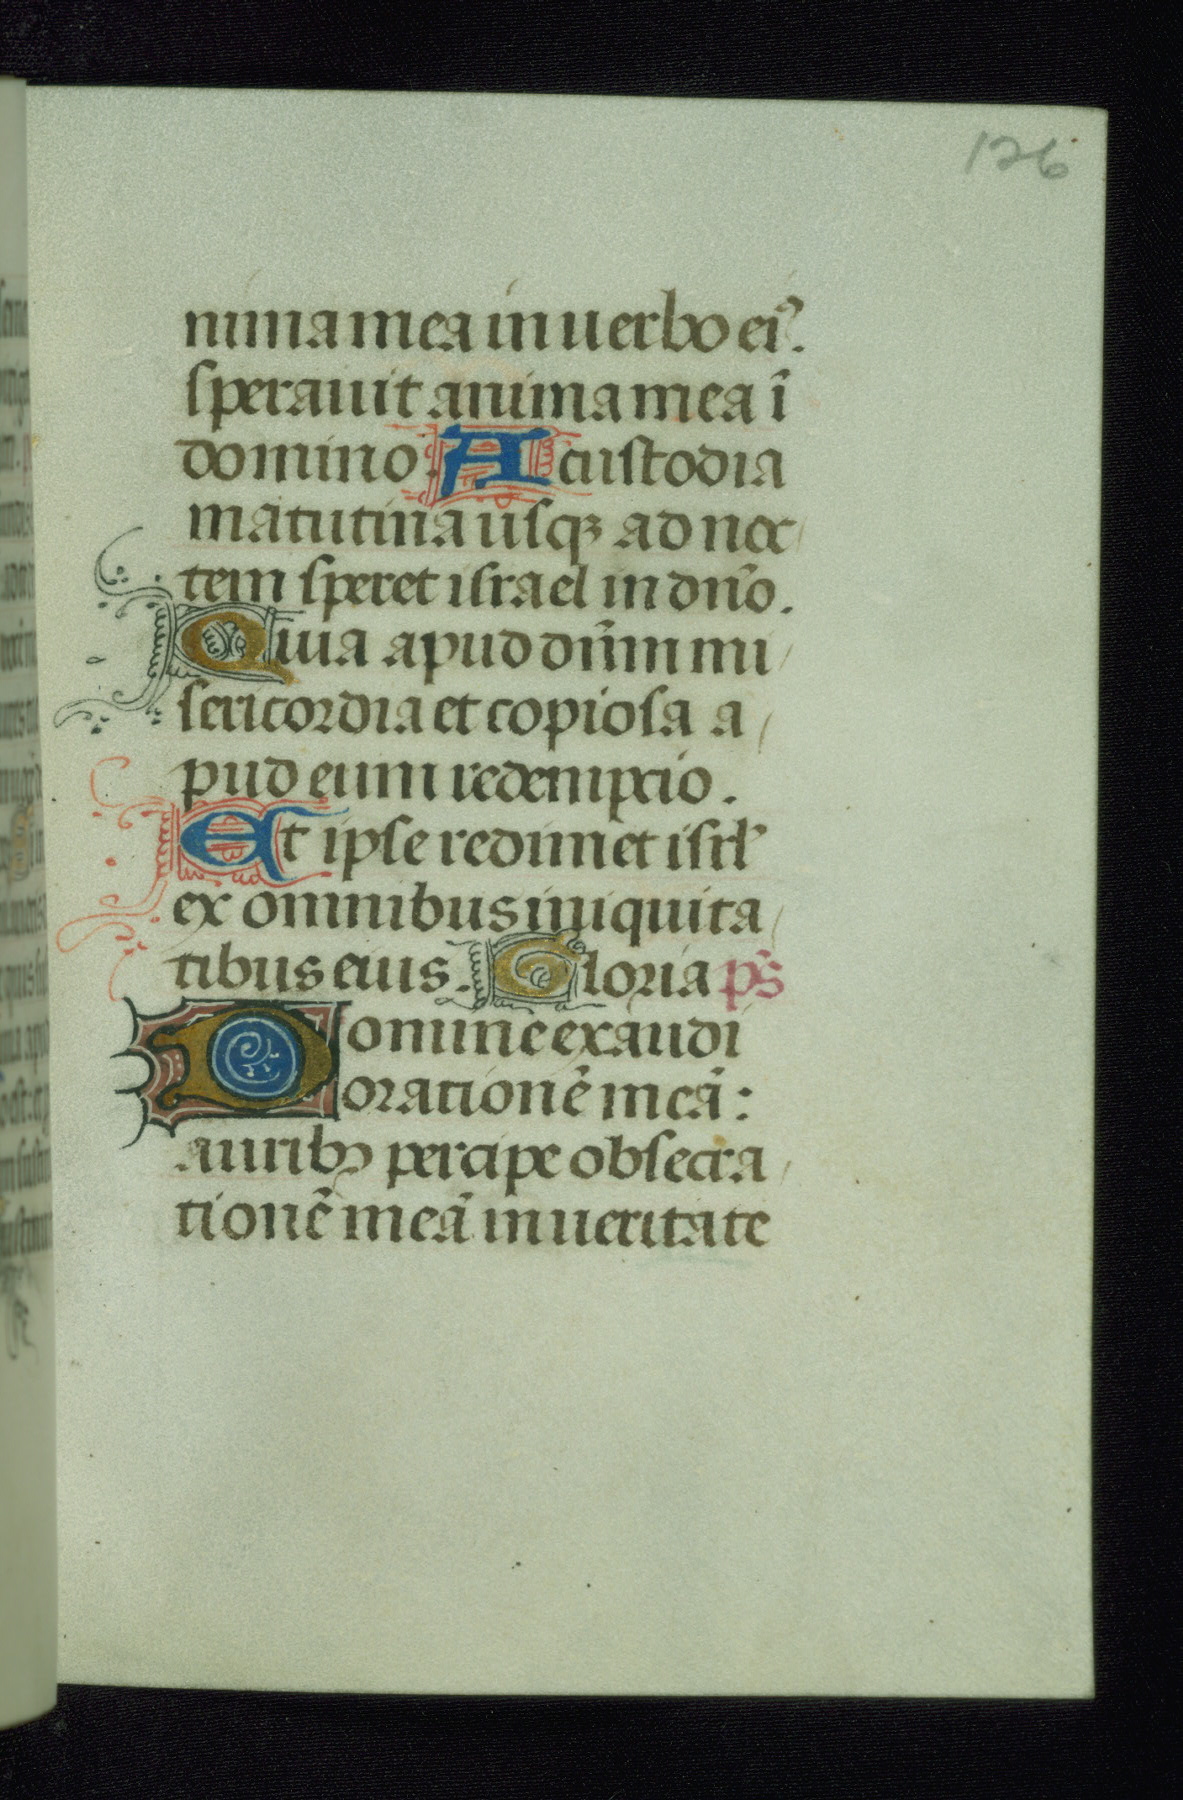 126
nima mea in uerbo ei⁹.
sperauit anima mea ī
domino. A custodia
matutina usqꝫ ad noc
tem speret israel in dn̄o.
Quia apud dn̄m mi
sericordia et copiosa a
pud eum redempcio.
Et ipse redimet isrl̓
ex omnibus iniquita
tibus eius. Gloria ps̄
Domine exaudi
orationē meā:
auribꝫ percipe obsecra
tionē meā in ueritate